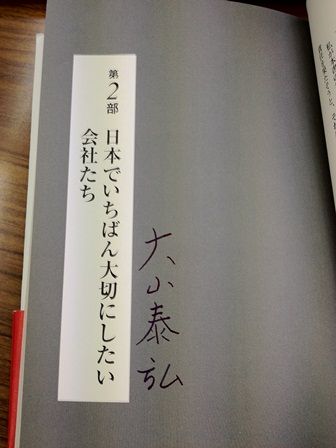 第2部
日本でいちばん大切にしたい
会社たち
大山泰弘